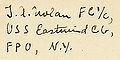 T. L. Nolan FC1/c,
USS Eastwind CG,
FPO, N.Y.